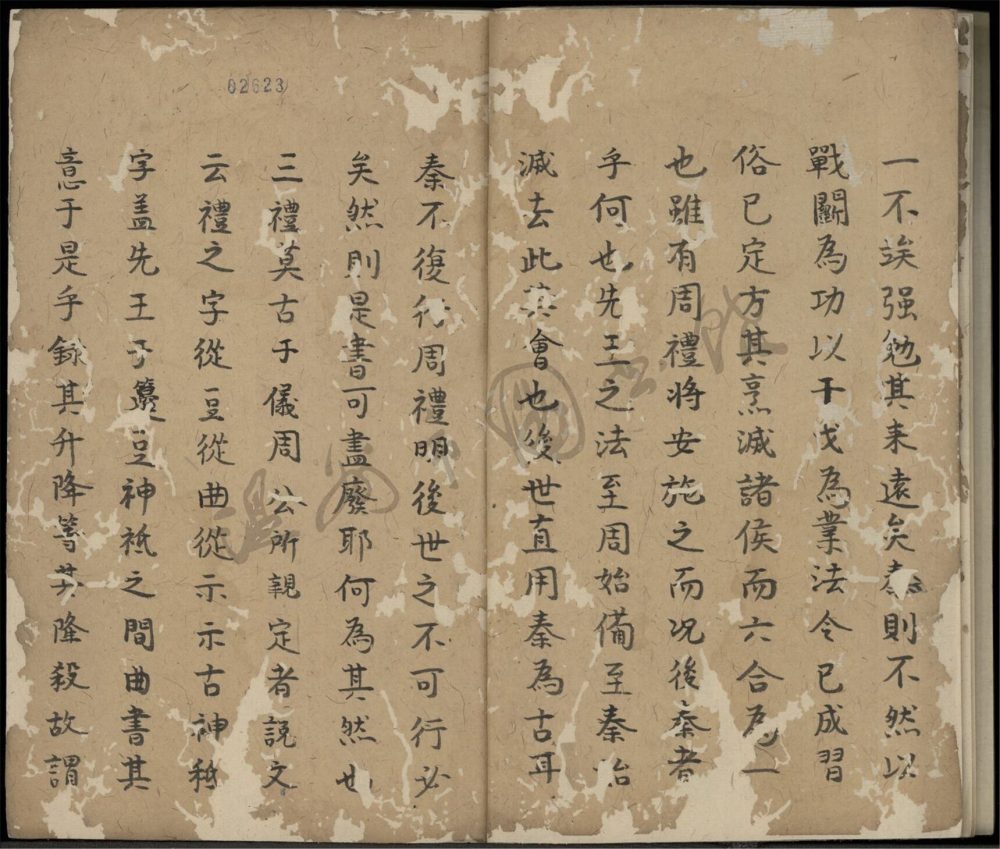 一不俟强勉其来遠矣秦則不然以
戰鬭為功以干戈為業法令已成習
俗已定方其烹滅諸侯而六合為一
也雖有周禮將安施之而况後秦者
乎何也先王之法至周始備至秦始
滅去此其會也後世直用秦為古耳
秦不復行周禮明後世之不可行必
矣然則是書可盡廢耶何為其然也
三禮莫古于儀周公所親定者説文
云禮之字從豆從曲從示示古神秪
字盖先王于籩豆神祗之間曲書其
意于是乎録其升降等其隆殺故謂
02623